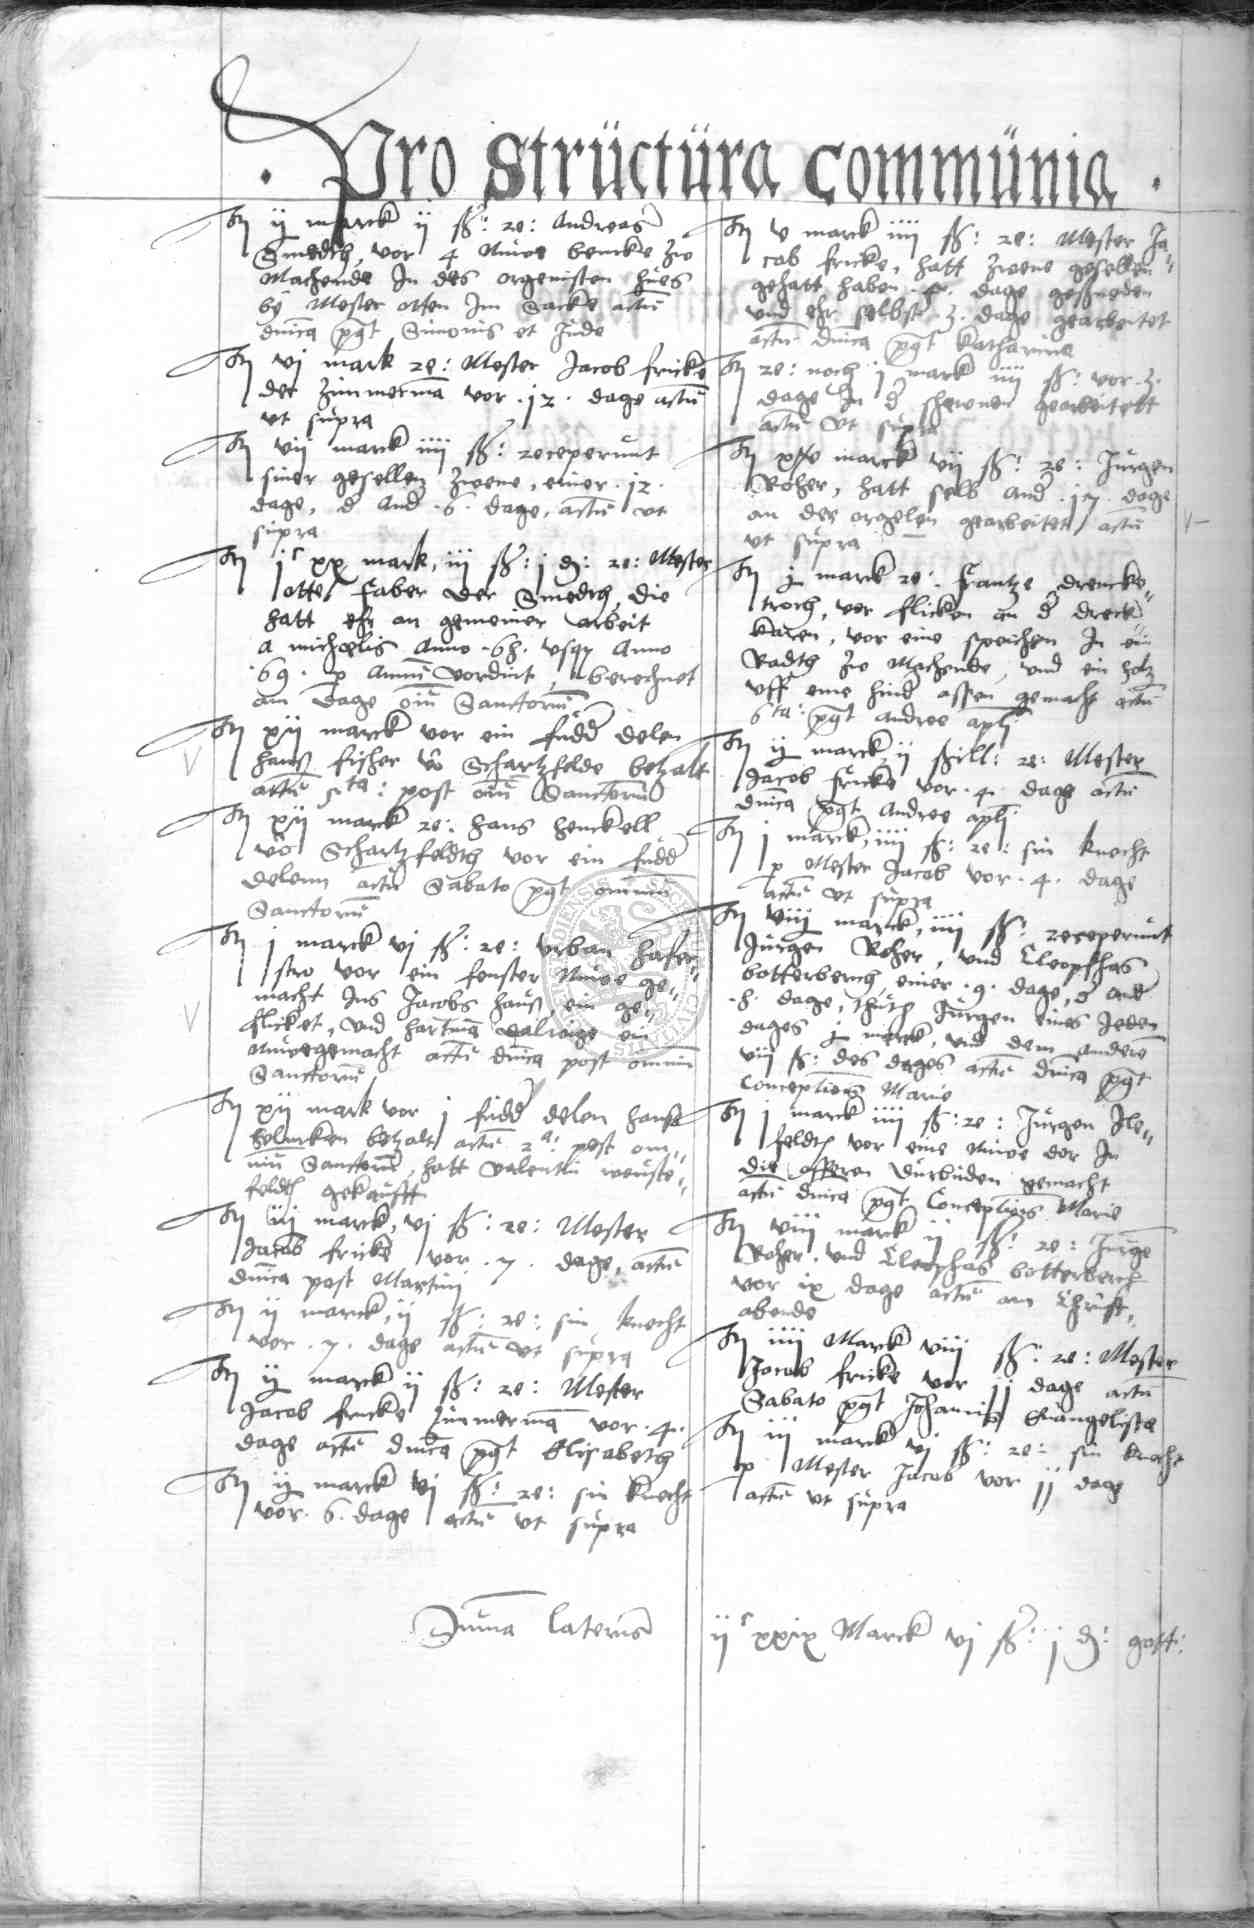 . Pro structura communia .
It ij marck ij ß: re: Andreas
Smedth, vor 4 Niwe bencke zw
Machende In des orgenisten hues
by Mester otten Im Sacke actu
dnica pgt Simonis et Jude
It vj mark re: Mester Jacob fricke
der Zimmerma vor .12. dage actu
vt supra
It vij marck iiij ß: receperunt
siner gesellen zweene, einer .12.
dage, d And .6. dage, actu vt
supra
It jc xx mark, iij ß: j d: re: Mester
otte Faber der Smedth, die
hatt ehr an gemeiner arbeit
a michaelis Anno .68. vsqz Anno
.69. p Annu vordint, berechnet
am dage oiu Sanctoru
It xij marck vor ein fudd delen
Hanß fisher vo Schartzfelde betzalt
actu 5ta: post oiu Sanctoru
It xij marck re: Hans Henckell
vo Schartzfeldth vor ein fudd
delenn actu Sabato pgt omniu
Sanctoru
It j marck vj ß: re: Urban Hafer„
stro vor ein fenster Niwe ge„
macht Ins Jacobs hauß, ein ge„
flicket, vnd Hartma ein
Niwegemacht actu dnica post omniu
Sanctoru
It xij mark vor j fudd delen Hanse
betzalt actu 2a: post om„
niu Sanctoru, hatt valentin
feldth gekaufft
It iij marck, vj ß: re: Mester
Jacob fricke vor .7. dage, actu
dnica post Martini
It ij marck, ij ß: re: sin knecht
vor .7. dage actu vt supra
It ij marck ij ß: re: Mester
Jacob fricke Zimmerma vor .4.
dage actu dnica pgt Elisabeth
It ij marck vj ß: re: sin knecht
vor .6. dage actu vt supra
It v marck iiij ß: re: Mester Ja„
cob fricke, hatt zweene gesellen
gehatt haben dage gesneden
vnd ehr selbst 3. dage gearbeitet
actu dnica pgt Katharine
It re: noch j mark iiij ß: vor .3.
dage In d gearbeitett
actu vt supra
It marck vij ß: re: Jurgen
Roher, hatt selb And .17. dage
an der orgelen gearbeitet actu
vt supra
It j marck re: Frantze drencke„
troch, vor flicken an d dreck„
karen, vor eine speichen In ein
Radth zw Machende, vnd ein holz
vff eine hind assen gemacht actu
6ta: pgt Andree apli
It ij marck ij ßill: re: Mester
Jacob Fricke vor .4. dage actu
dnica pgt Andree apli
It j marck, iiij ß: re: sin knecht
p Mester Jacob vor .4. dage
actu vt supra
It viij marck, iiij ß: receperunt
Jurgen Roher, vnd Cleophas
botterberch, einer .9. dage, d and
.8. dage, Jurgen eines Jeden
dages j marck, vnd dem andere
vij ß: des dages actu dnica pgt
Conceptionis Marie
It j marck iiij ß: re: Jurgen Ile„
feldth vor eine Niwe dor In
die gemacht
actu dnica pgt Conceptionis Marie
It viij marck ij ß: re: Jurge
Roher, vnd Cleophas botterberch
vor ix dage actu am Christ„
abende
It iiij Marck viij ß: re: Mester
Jacob fricke vor 11 dage actu
Sabato pgt Johannis Euangeliste
It iij marck vj ß: re: sin knecht
p Mester Jacob vor 11 dage
actu vt supra
Suma lateris ijc xxix Marck vj ß: j d: gott: